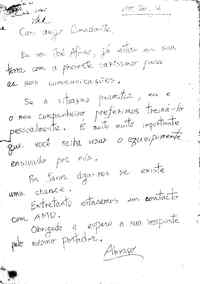 Caro amigo Comandante.
Eu sou José Afonso, já estou em sua
terra com a presente para
as suas comunicações.
Se a situação permitir, eu e
o meu companheiro preferimos treiná-lo
pessoalmente. É muito muito importante
que você saiba usar o equipamento
enviado por nós.
Por favor diga-nos se existe
uma chance.
Entretanto estaremos em contacto
com AMD.
Obrigado e espero a sua resposta
pelo mesmo portador.
Abraço